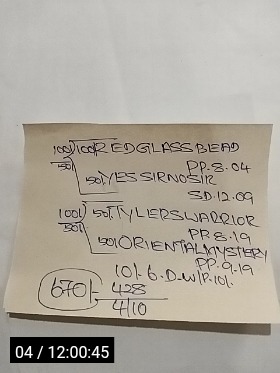 100/ 100/ REDGLASSBEAD
50/ PP.8.04
50/ YESSIRNOSIR
SD.12.09
100/ 50/ TYLIERSWARRIOR
50/ PP.8.19
50/ ORIENTALMYSTERY
PP.9.19
10/. 6.D.W/P.10/.
670/- 428
4/10
04 / 12:00:45